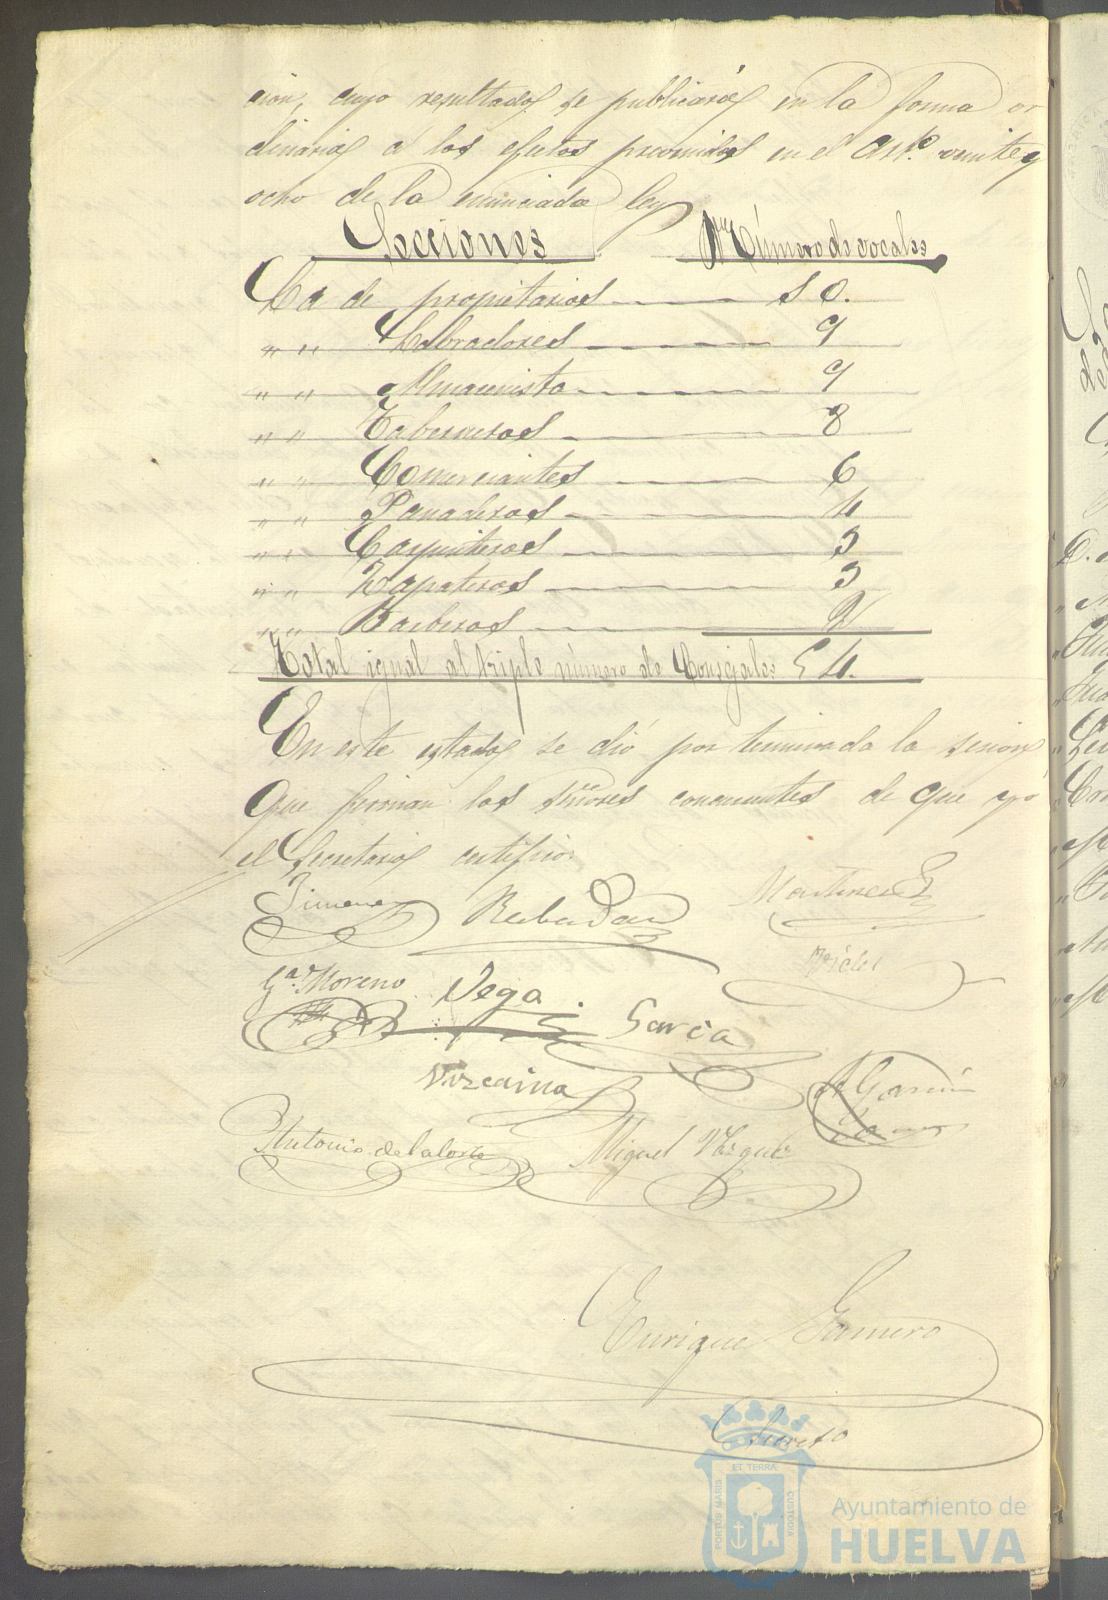 cion, cuyo resultado se publicará en la forma or
dinaria á los efectos prevenidos en el Artº veinte y
ocho de la enunciada ley
Secciones Número de vocales
La de propietarios 10.
" " Labradores 9
" " Almacenista 9
" " Taberneros 8
" " Comerciantes 6
" " Panaderos 4
" " Carpinteros 3
" " Zapateros 3
" " Barberos 2
Total igual al triple número de Concejales 54.
En este estado se dió por terminada la sesion
que firman los señores concurrentes de que yo
el Secretario certifico.
Jimenez Rabadan Martinez
Gª Moreno Vega Garcia
Vizcaina A Garcia
Antonio de la Corte Miguel Vazquez
Enrique Gamero
Secreto
ET TERRÆ
PORTUS MARIS
CUSTODIA
Ayuntamiento de
HUELVA